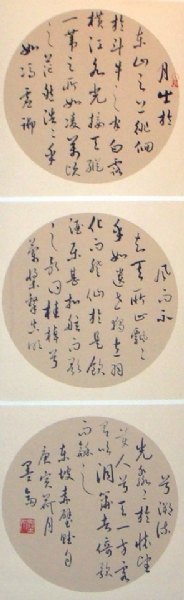 月出於
東山之上徘徊
於斗牛之間白露
橫江水光接天縱
一葦之所如凌萬頃
之茫然浩浩乎
如馮虛御
風而不
知其所止飄飄
乎如遺世獨立羽
化而登仙於是飲
酒樂甚扣舷而歌
之歌曰桂棹兮
蘭槳擊空明
兮溯流
光渺渺兮於懷望
美人兮天一方客
有吹洞簫者倚歌
而和之
東坡赤壁賦句
庚寅荷月
墨